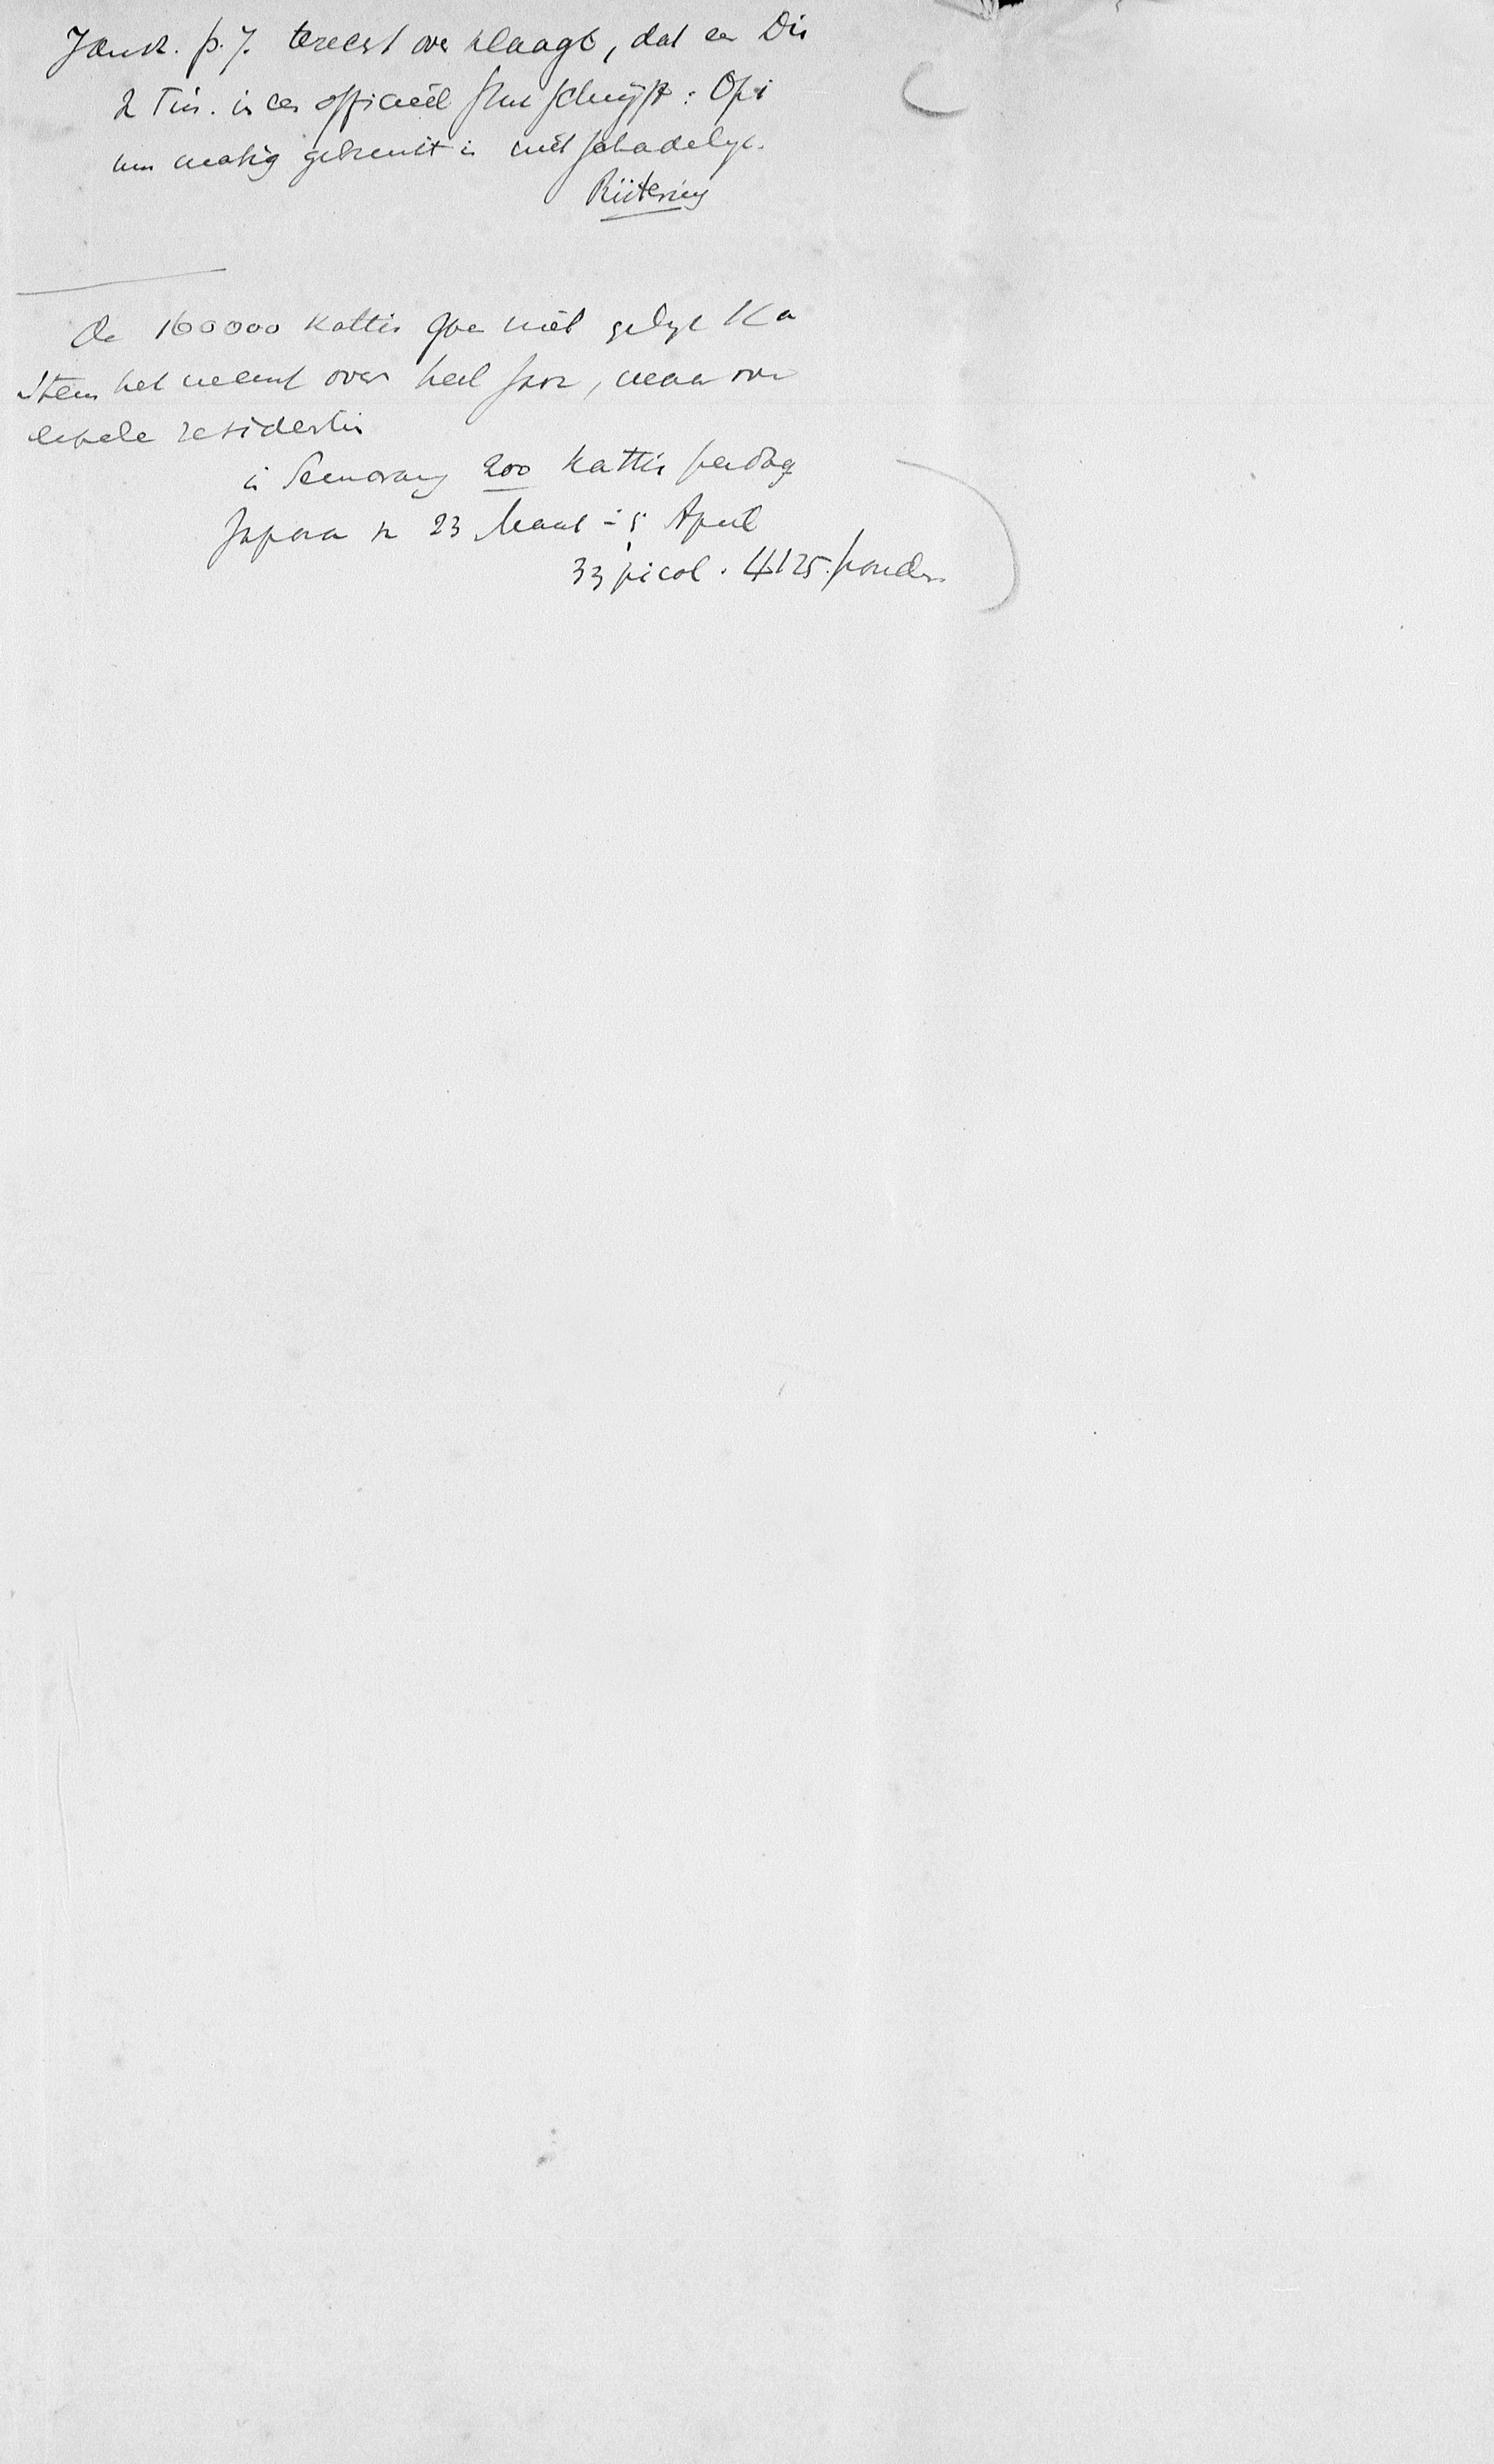 Jansz. p. 7. terecht over klaagt, dat een Dir
v Fin. in een officieel stuk schrijft: Opi
um matig gebruikt is niet schadelijk.
Rütering
De 160000 kattis gaan niet gelijk Ka
Stem het neemt over heel Java, maar over
enkele residentin
in Semarang 200 kattis per dag
Japara v 23 Maart - 5 April
33 picol. 4125 ponden